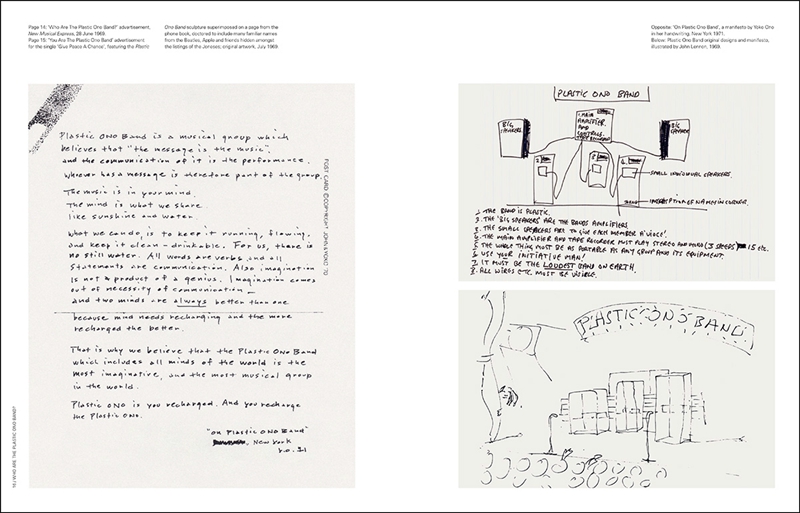 Page 14: 'Who Are The Plastic Ono Band?' advertisement,
New Musical Express, 28 June 1969.
Page 15: 'You Are The Plastic Ono Band' advertisement
for the single 'Give Peace A Chance', featuring the Plastic
Ono Band sculpture superimposed on a page from the
phone book, doctored to include many familiar names
from the Beatles, Apple and friends hidden amongst
the listings of the Joneses; original artwork, July 1969.
Opposite: 'On Plastic Ono Band', a manifesto by Yoko Ono
in her handwriting, New York 1971.
Below: Plastic Ono Band original designs and manifesto,
illustrated by John Lennon, 1969.
Plastic ONO Band is a musical group which
believes that "the message is the music".
and the communication of it is the performance.
Whoever has a message is therefore part of the group.
The music is in your mind.
The mind is what we share.
like sunshine and water.
What we can do, is to keep it running, flowing,
and keep it clean - drinkable. For us, there is
no still water. All words are verbs and all
statements are communication. Also imagination
is not a product of a genius. Imagination comes
out of necessity of communication –
and two minds are always better than one
because mind needs recharging and the more
recharged the better.
That is why we believe that the Plastic ONO Band
which includes all minds of the world is the
most imaginative, and the most musical group
in the world.
Plastic ONO is you recharged. And you recharge
the Plastic ONO.
"On Plastic ONO Band"
New York
y.o. '71
POST CARD ©COPYRIGHT JOHN & YOKO '70
16 | WHO ARE THE PLASTIC ONO BAND?
PLASTIC ONO BAND
BIG SPEAKERS
MAIN
AMPLIFIER
AND
CONTROLS
BIG SPEAKER
SMALL INDIVIDUAL SPEAKERS.
INSCRIPTION OF NAMES IN CORNER.
1. THE BAND IS PLASTIC.
2. THE 'BIG SPEAKERS' ARE THE BANDS AMPLIFIERS
3. THE SMALL SPEAKERS ARE TO GIVE EACH MEMBER A 'VOICE'.
4. THE MAIN AMPLIFIER AND TAPE RECORDER MUST PLAY STEREO AND MONO (3 SPEEDS 15 etc.
5. THE WHOLE THING MUST BE AS PORTABLE AS ANY GROUP AND ITS EQUIPMENT.
6. USE YOUR INITIATIVE MAN!
7. IT MUST BE THE LOUDEST BAND ON EARTH.
8. ALL WIRES ETC. MUST BE VISIBLE.
PLASTIC ONO BAND